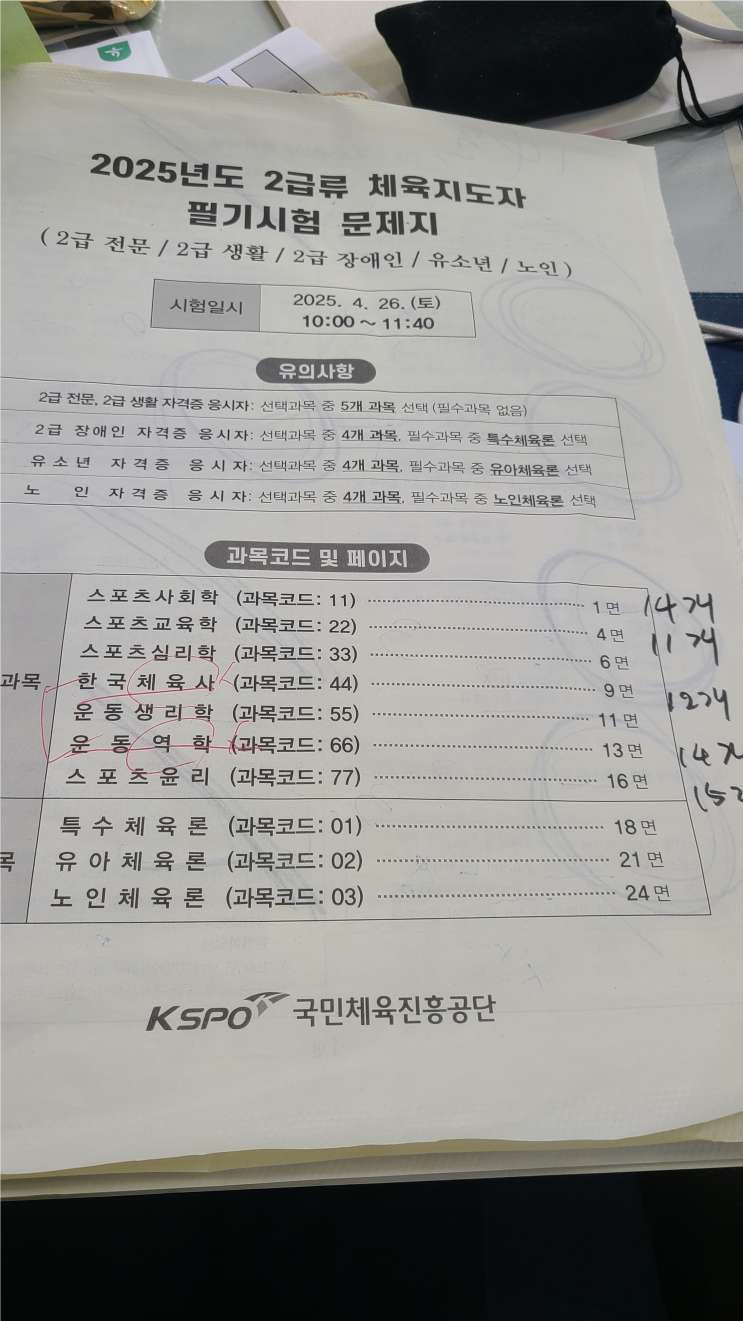 2025년도 2급류 체육지도자
필기시험 문제지
( 2급 전문 / 2급 생활 / 2급 장애인 / 유소년 / 노인 )
시험일시 2025. 4. 26. (토)
10:00 ~ 11:40
유의사항
2급 전문, 2급 생활 자격증 응시자: 선택과목 중 5개 과목 선택 (필수과목 없음)
2급 장애인 자격증 응시자: 선택과목 중 4개 과목, 필수과목 중 특수체육론 선택
유소년 자격증 응시자: 선택과목 중 4개 과목, 필수과목 중 유아체육론 선택
노인 자격증 응시자: 선택과목 중 4개 과목, 필수과목 중 노인체육론 선택
과목코드 및 페이지
스포츠사회학 (과목코드: 11) 1 면 14개
스포츠교육학 (과목코드: 22) 4 면 11개
스포츠심리학 (과목코드: 33) 6 면
과목 한국체육사 (과목코드: 44) 9 면 12개
운동생리학 (과목코드: 55) 11 면
운동역학 (과목코드: 66) 13 면 14개
스포츠윤리 (과목코드: 77) 16 면
특수체육론 (과목코드: 01) 18 면
목 유아체육론 (과목코드: 02) 21 면
노인체육론 (과목코드: 03) 24 면
KSPO 국민체육진흥공단